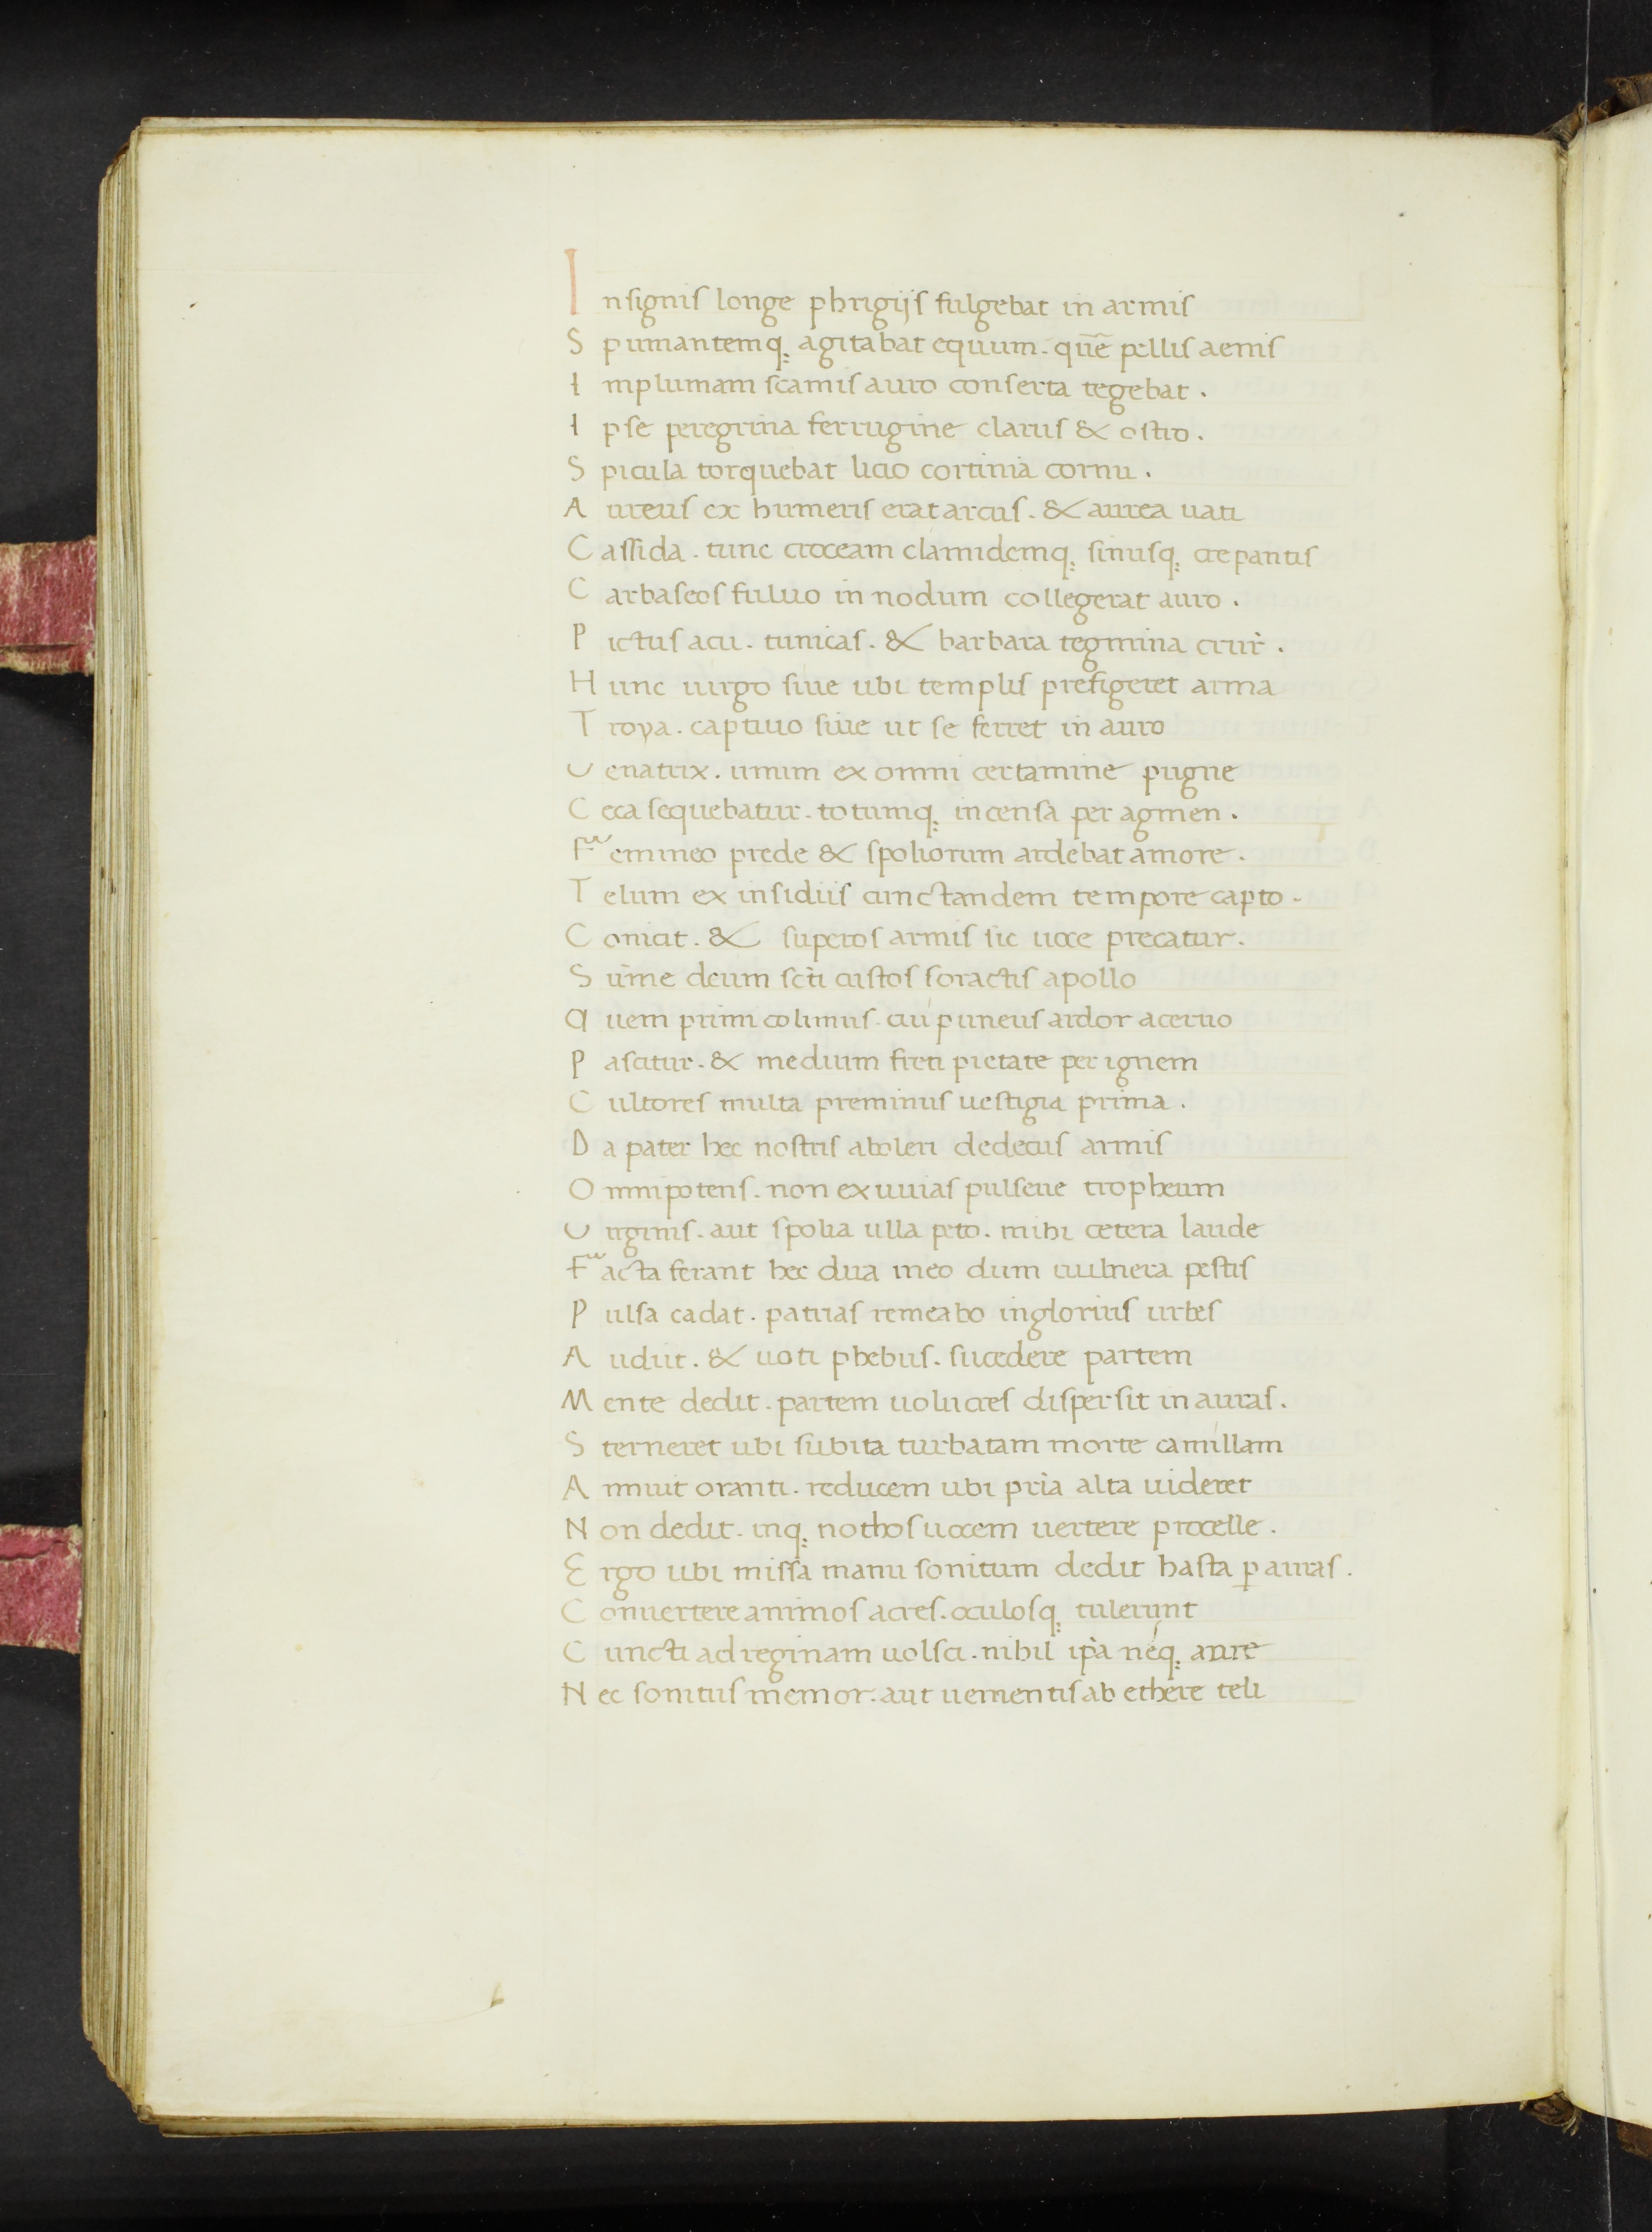 Insignis longe phrigijs fulgebat in armis
Spumantemq; agitabat equum. quē pellis aenis
Implumam scamis auro conserta tegebat.
Ipse peregrina ferrugine clarus & ostro.
Spicula torquebat licio cortinia cornu.
Aureus ex humeris erat arcus. & aurea uati
Cassida. tunc croceam clamidemq; sinusq; crepantis
Carbaseos fuluo in nodum collegerat auro.
Pictus acu. tunicas. & barbara tegmina crur̀.
Hunc uirgo siue ubi templis prefigeret arma
Troya. captiuo siue ut se ferret in auro
Uenatrix. unum ex omni certamine pugne
Ceca sequebatur. totumq; incensa per agmen.
Femineo prede & spoliorum ardebat amore.
Telum ex insidiis cunctandem tempore capto.
Conicit. & superos armis sic uoce precatur.
Sùme deum scti custos soractis apollo
Quem primi colimus. cui pineus ardor aceruo
Pascitur. & medium freti pietate per ignem
Cultores multa preminus uestigia prima.
Da pater hec nostris aboleri dedecus armis
Omnipotens. non exuuias pulseue tropheum
Uirginis. aut spolia ulla peto. mihi cetera laude
Facta ferant hec dira meo dum uulnera pestis
Pulsa cadat. patrias remeabo inglorius urbes
Audiit. & uoti phebus. sucedere partem
Mente dedit. partem uolucres dispersit in auras.
Sterneret ubi subita turbatam morte camillam
Annuit oranti. reducem ubi prìa alta uideret
Non dedit. inq; nothos uocem uertere procelle.
Ergo ubi missa manu sonitum dedit hasta ꝑ auras.
Conuertere animos acres. oculosq; tulerunt
Cuncti ad reginam uolsci. nihil ip̀a neq; aure
Nec sonitus memor. aut uementis ab ethere teli